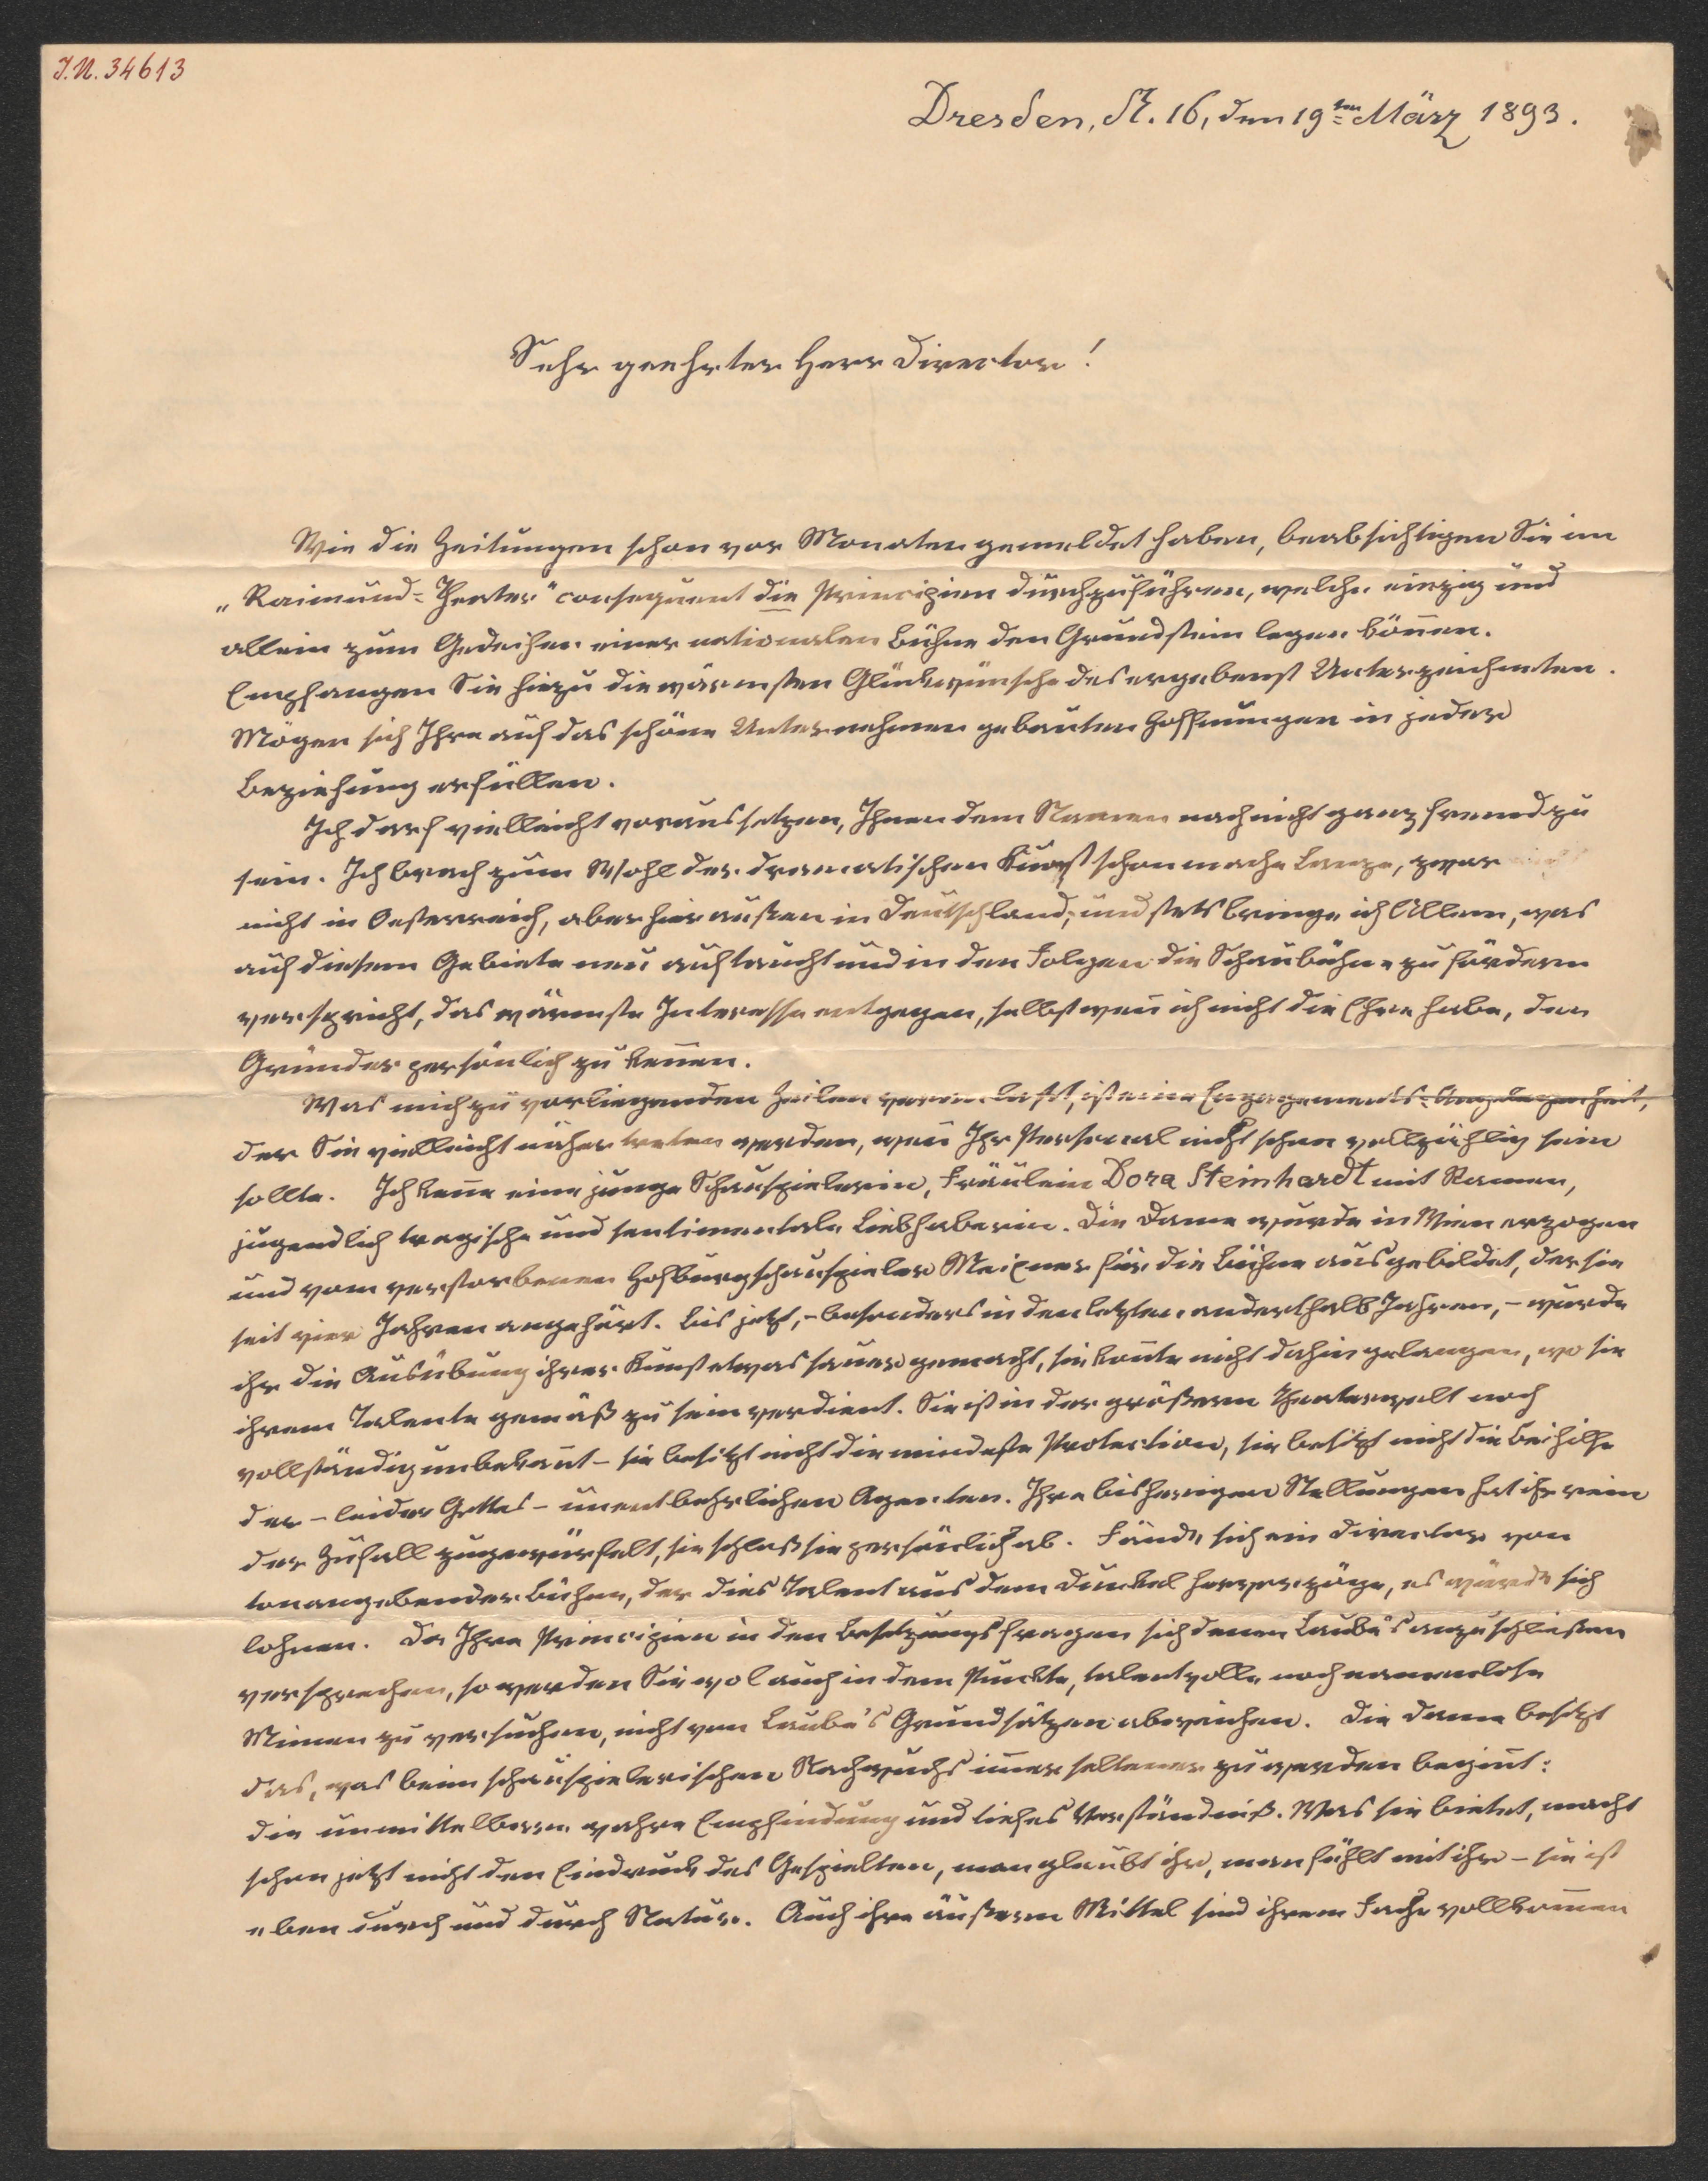 J.N. 34613
Dresden, A. 16, den 19ten März 1893.
Sehr geehrter Herr Director!
Wie die Zeitungen schon vor Monaten gemeldet haben, beabsichtigen Sie im
„Raimund-Theater" consequent die Principien durchzuführen, welche einzig und
allein zum Gedeihen einer nationalen Bühne den Grundstein legen können.
Empfangen Sie hiezu die wärmsten Glückwünsche des ergebenst Unterzeichneten.
Mögen sich Ihre auf das schöne Unternehmen gebauten Hoffnungen in jeder
Beziehung erfüllen.
Ich darf vielleicht voraussetzen, Ihnen dem Namen nach nicht ganz fremd zu
sein. Ich brach zum Wohl der dramatischen Kunst schon manche Lanze, zwar
nicht in Oesterreich, aber hier außen in Deutschland; und stets bringe ich Allem, was
auf diesem Gebiete neu auftaucht und in den Folgen die Schaubühne zu fördern
verspricht, das wärmste Interesse entgegen, selbst wen̄ ich nicht die Ehre habe, den
Gründer persönlich zu ken̄en.
Was mich zu vorliegenden Zeilen veranlaßt, ist eine Engagements-Angelegenheit,
der Sie vielleicht näher treten werden, wen̄ Ihr Personal nicht schon vollzählig sein
sollte. Ich ken̄e eine junge Schauspielerin, Fräulein Dora Steinhardt mit Namen,
jugendlich tragische und sentimentale Liebhaberin. Die Dame wurde in Wien erzogen
und vom verstorbenen Hofburgschauspieler Meixner für die Bühne ausgebildet, der sie
seit vier Jahren angehört. Bis jetzt, - besonders in den letzten anderthalb Jahren, - wurde
ihr die Ausübung ihrer Kunst etwas sauer gemacht, sie kon̄te nicht dahin gelangen, wo sie
ihrem Talente gemäß zu sein verdient. Sie ist in der größeren Theaterwelt noch
vollständig unbekan̄t - sie besitzt nicht die mindeste Protection, sie besitzt nicht die Beihilfe
der - leider Gottes - unentbehrlichen Agenten. Ihre bisherigen Stellungen hat ihr rein
der Zufall zugewürfelt, sie schloß sie persönlich ab. Fände sich ein Director von
tonangebender Bühne, der dies Talent aus dem Dunkel hervorzöge, es würde sich
lohnen. Da Ihre Principien in den Besetzungsfragen sich denen Laube's anzuschließen
versprechen, so werden Sie wol auch in dem Punkte, talentvolle, noch namenlose
Mimen zu versuchen, nicht von Laube's Grundsätzen abweichen. Die Dame besitzt
das, was beim schauspielerischen Nachwuchs im̄er seltener zu werden begin̄t:
die unmittelbare wahre Empfindung und tiefes Verständniß. Was sie bietet, macht
schon jetzt nicht den Eindruck des Gespielten, man glaubt ihr, man fühlt mit ihr - sie ist
eben durch und durch Natur. Auch ihre äußeren Mittel sind ihrem Fache vollkom̄en